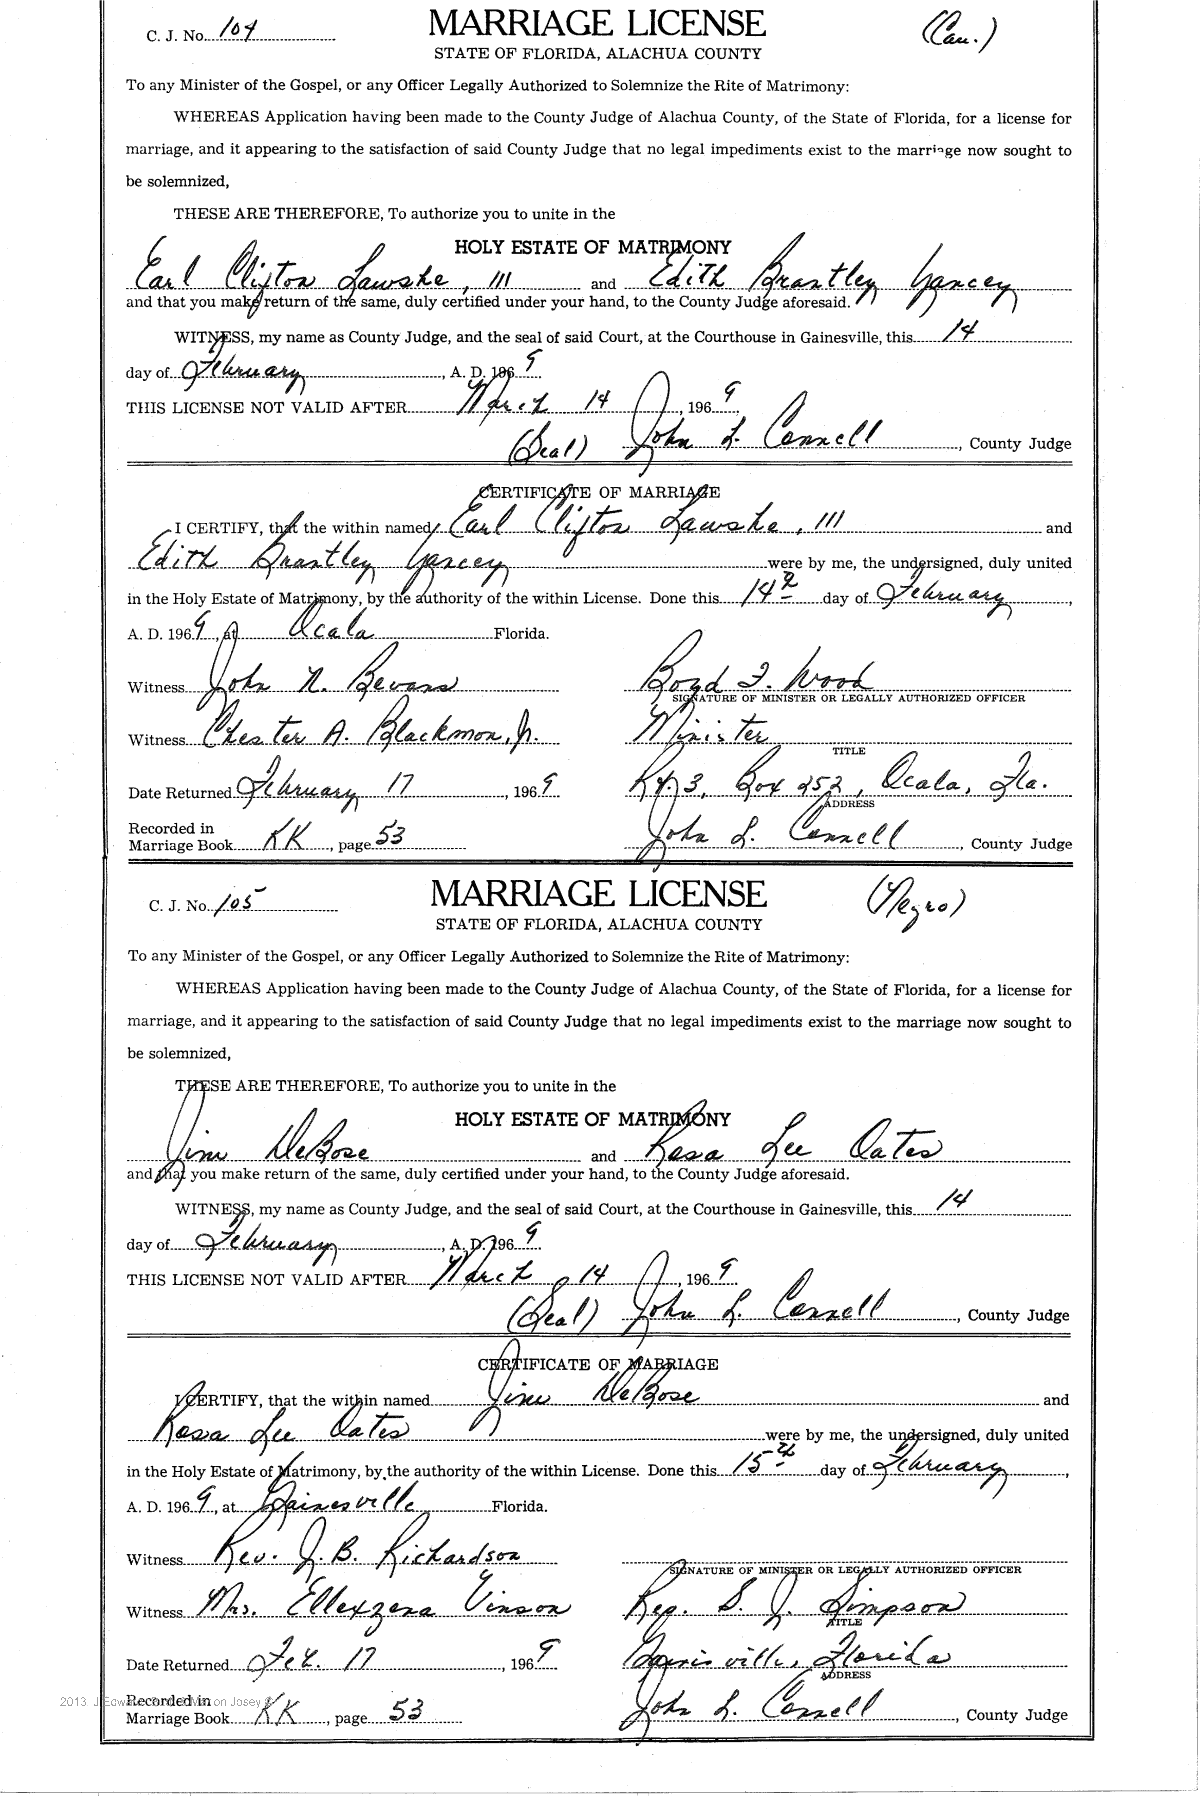 C. J. No. 104 MARRIAGE LICENSE (Cau.)
STATE OF FLORIDA, ALACHUA COUNTY
To any Minister of the Gospel, or any Officer Legally Authorized to Solemnize the Rite of Matrimony:
WHEREAS Application having been made to the County Judge of Alachua County, of the State of Florida, for a license for
marriage, and it appearing to the satisfaction of said County Judge that no legal impediments exist to the marriage now sought to
be solemnized,
THESE ARE THEREFORE, To authorize you to unite in the
HOLY ESTATE OF MATRIMONY
Earl Clifton Lawshe, III and Edith Brantley Yancey
and that you make return of the same, duly certified under your hand, to the County Judge aforesaid.
WITNESS, my name as County Judge, and the seal of said Court, at the Courthouse in Gainesville, this 14
day of February, A. D. 1969.
THIS LICENSE NOT VALID AFTER March 14, 1969.
(Seal) John L. Connell, County Judge
CERTIFICATE OF MARRIAGE
I CERTIFY, that the within named Earl Clifton Lawshe, III and
Edith Brantley Yancey were by me, the undersigned, duly united
in the Holy Estate of Matrimony, by the authority of the within License. Done this 14th day of February,
A. D. 1969, at Ocala Florida.
Witness John N. Bevans Boyd F. Wood
SIGNATURE OF MINISTER OR LEGALLY AUTHORIZED OFFICER
Witness Chester A. Blackmon, Jr. Minister
TITLE
Date Returned February 17, 1969 Rt. 3, Box 252, Ocala, Fla.
ADDRESS
Recorded in
Marriage Book KK, page 53 John L. Connell, County Judge
C. J. No. 105 MARRIAGE LICENSE (Negro)
STATE OF FLORIDA, ALACHUA COUNTY
To any Minister of the Gospel, or any Officer Legally Authorized to Solemnize the Rite of Matrimony:
WHEREAS Application having been made to the County Judge of Alachua County, of the State of Florida, for a license for
marriage, and it appearing to the satisfaction of said County Judge that no legal impediments exist to the marriage now sought to
be solemnized,
THESE ARE THEREFORE, To authorize you to unite in the
HOLY ESTATE OF MATRIMONY
Jim DeBose and Rosa Lee Oates
and that you make return of the same, duly certified under your hand, to the County Judge aforesaid.
WITNESS, my name as County Judge, and the seal of said Court, at the Courthouse in Gainesville, this 14
day of February, A. D. 1969.
THIS LICENSE NOT VALID AFTER March 14, 1969.
(Seal) John L. Connell, County Judge
CERTIFICATE OF MARRIAGE
I CERTIFY, that the within named Jim DeBose and
Rosa Lee Oates were by me, the undersigned, duly united
in the Holy Estate of Matrimony, by the authority of the within License. Done this 15th day of February,
A. D. 1969, at Gainesville Florida.
Witness Rev. J. B. Richardson
SIGNATURE OF MINISTER OR LEGALLY AUTHORIZED OFFICER
Witness Mrs. Ellexzena Vinson Rev. S. J. Simpson
TITLE
Date Returned Feb. 17, 1969 Gainesville, Florida
ADDRESS
Recorded in
Marriage Book KK, page 53 John L. Connell, County Judge
2013 on Josey